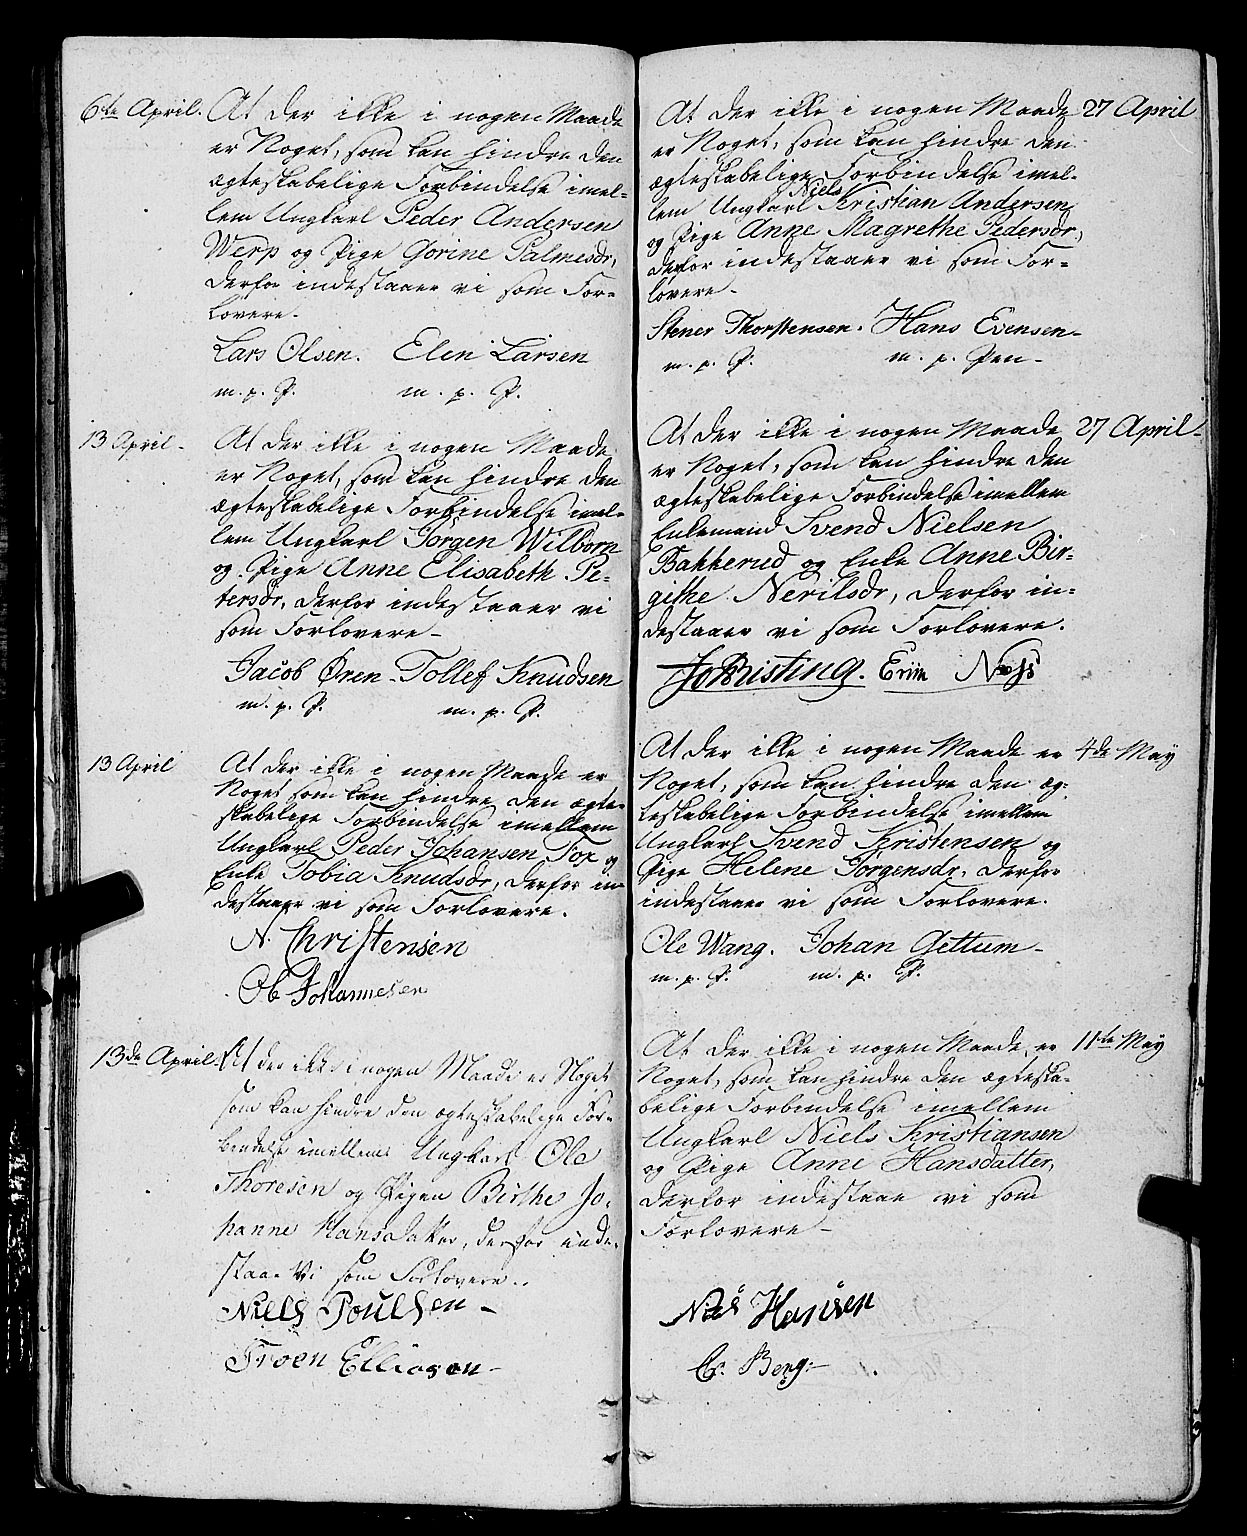 6te April. At der ikke i nogen Maade
er Noget, som kan hindre den
ægteskabelige Forbindelse imel-
lem Ungkarl Peder Andersen
Werp og Pige Gorine Palmesdr,
derfor indestaaer vi som For-
lovere.
Lars Olsen. Elen Larsen
m. p. P. m. p. P.
13 April - At der ikke i nogen Maade
er Noget, som kan hindre den
ægteskabelige Forbindelse imel-
lem Ungkarl Jørgen Wilborn
og Pige Anne Elisabeth Pe-
tersdr, derfor indestaaer vi
som Forlovere -
Jacob Øren - Tollef Knudsen
m. p. P. m. p. P.
13 April At der ikke i nogen Maade er
Noget som kan hindre den ægte-
skabelige Forbindelse imellem
Ungkarl Peder Johansen Fox og
Enke Tobia Knudsdr, derfor in-
destaaer vi som Forlovere.
N. Christensen
Ol Johannesen
13de April. At der ikke i nogen Maade er Noget
som kan hindre den ægteskabelige For-
bindelse imellem Ungkarl Ole
Thoresen og Pigen Birthe Jo-
hanne Hansdatter, derfor inde-
staae Vi som Forlovere..
Niels Poulsen -
Troen Elliasen -
At der ikke i nogen Maade 27 April
er Noget, som kan hindre den
ægteskabelige Forbindelse imel-
lem Ungkarl Niels Kristian Andersen
og Pige Anne Magrethe Pedersdr,
derfor indestaaer vi som For-
lovere -
Stener Thorstensen. Hans Evensen -
m. p. P. m. p. Pen -
At der ikke i nogen Maade 27 April -
er Noget, som kan hindre den
ægteskabelige Forbindelse imellem
Enkemand Svend Nielsen
Bakkerud og Enke Anne Bir-
githe Nerilsdr, derfor in-
destaaer vi som Forlovere.
Jo Risting.
At der ikke i nogen Maade er 4de May
Noget, som kan hindre den æg-
teskabelige Forbindelse imellem
Ungkarl Svend Kristensen og
Pige Helene Jørgensdr. derfor
indestaaer vi som Forlovere.
Ole Wang. Johan Gettum -
m. p. P. m. p. P.
At der ikke i nogen Maade er 11te May
Noget, som kan hindre den ægteska-
belige Forbindelse imellem
Ungkarl Niels Kristiansen
og Pige Anne Hansdatter,
derfor indestaae vi som
Forlovere -
Niels Hansen
Berg -